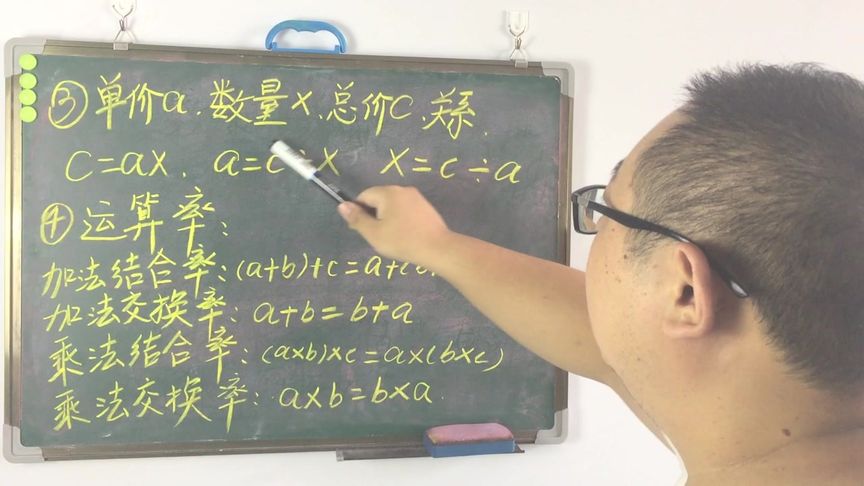 ③单价a.数量x、总价C、关系.
C=ax. a=c÷x x=c÷a
④运算率:
加法结合率:(a+b)+c=a+(
加法交换率:a+b=b+a
乘法结合率:(a×b)×c=a×(b×c)
乘法交换率:a×b=b×a